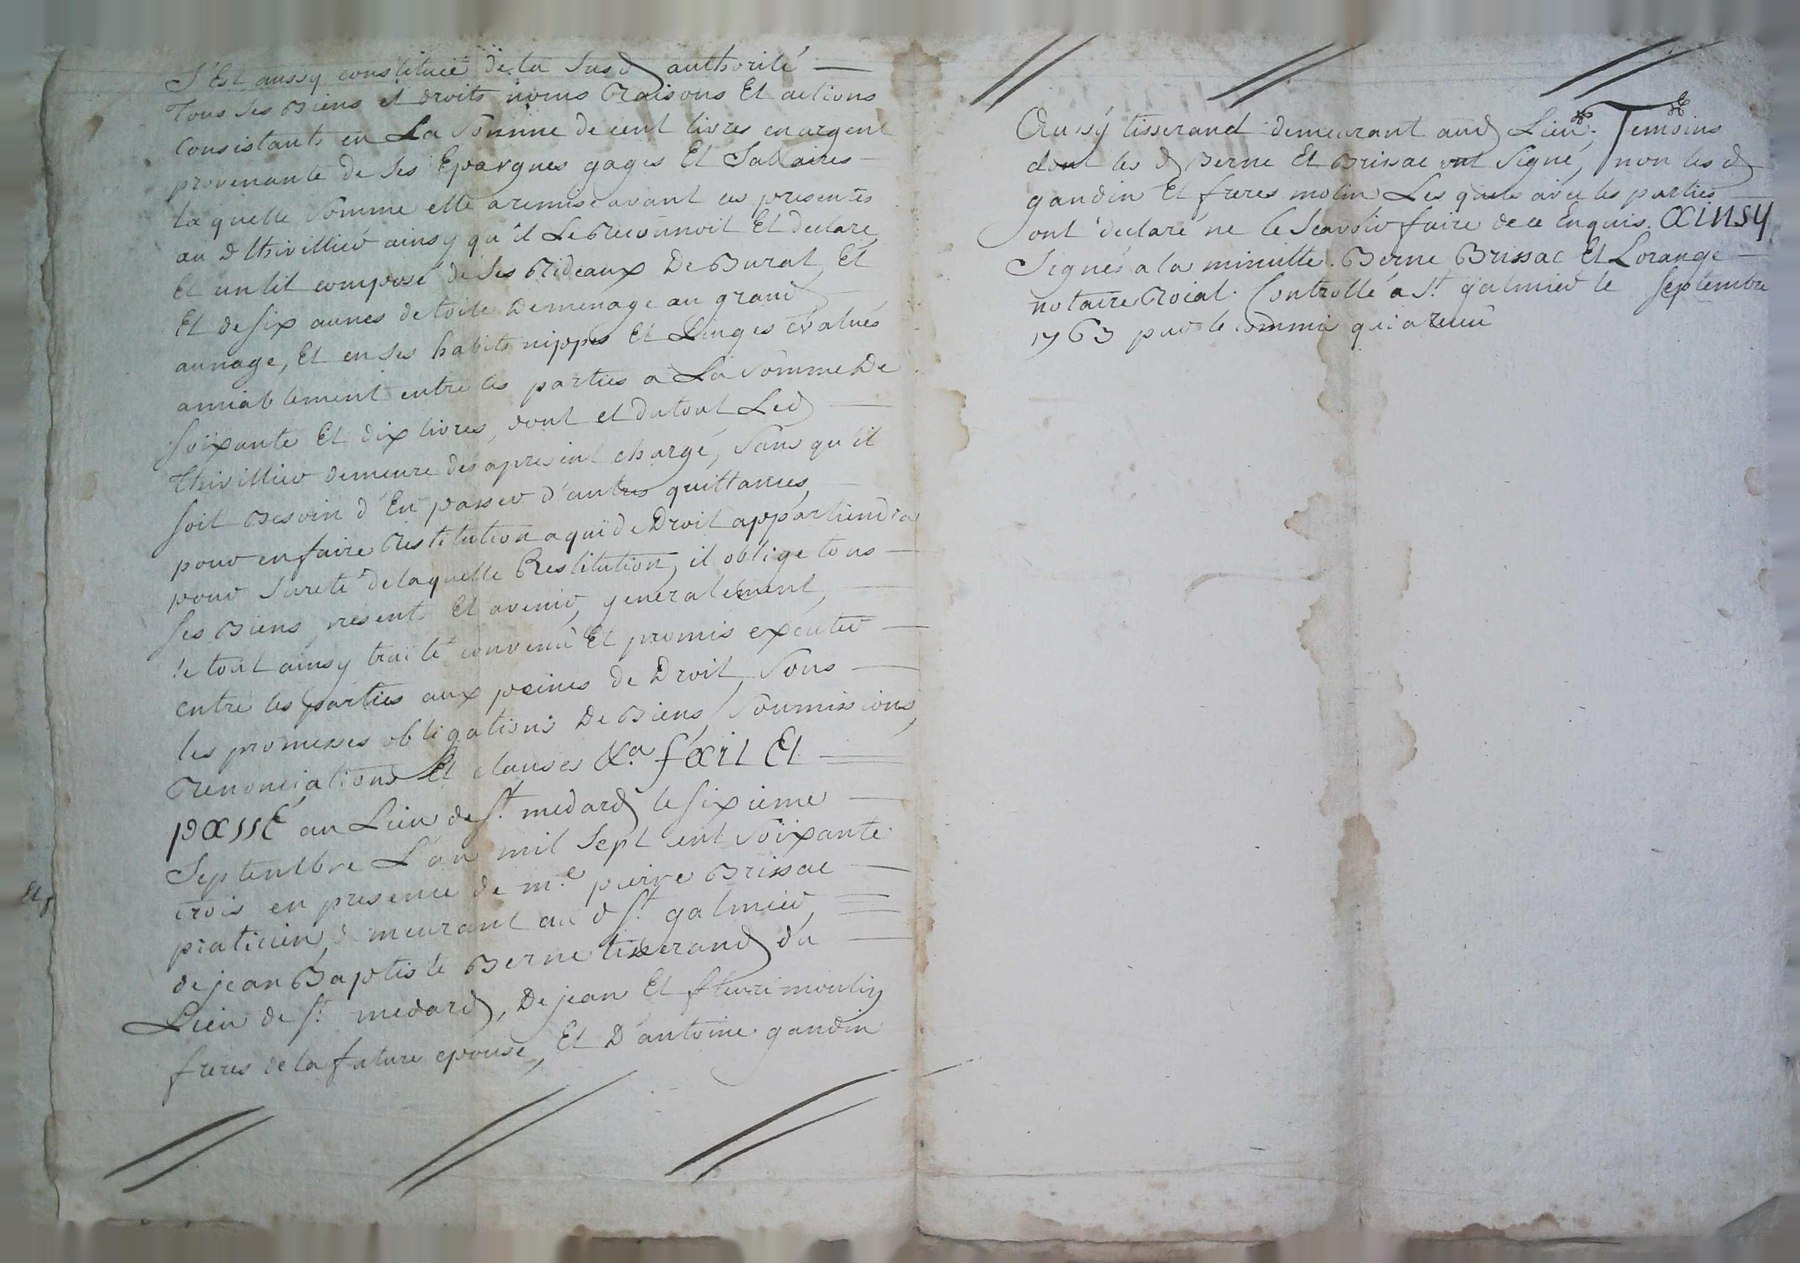 S'Est aussy constituée de la susd authorité
tous ses Biens et droits noms Raisons Et actions
Consistants en La Somme de cent livres en argent
provenante de ses Epargnes gages Et Sallaires
la quelle Somme elle a remise avant ces presentes
au d thivillier ainsy qu'il Le Reconnoit Et declare,
Et un lit composé de ses Rideaux De Burat, Et
Et de six aunes de toile De menage au grand
aunage, Et en ses habits nippes Et Linges Evalués
amiablement entre les parties a La Somme De
soixante Et dix livres, dont et du tout Led
thivillier demeure des apresent chargé, sans qu'il
soit Besoin d'En passer d'autres quittances,
pour en faire Restitution a qui de Droit appartiendra
pour sureté de laquelle Restitution, il oblige tous
ses Biens presents Et avenir, generalement,
le tout ainsy traité convenu Et promis executer
entre les parties aux peines de Droit, Sous
les promesses obligations De Biens Soumissions,
Renonciations Et clauses &a. fait Et
passé au Lieu de st. medard le sixieme
Septembre L'an mil Sept cent soixante
trois en presence de me. pierre Brissac
praticien, demeurant au d st. galmier,
de jean Baptiste Berne tisserand du
Lieu de st. medard, De jean Et fleuri moulin
freres de la future epouse, Et D'antoine gandin
aussy tisserand demeurant aud Lieu. Temoins
dont les d Berne Et Brissac ont signé, non les d
gandin Et freres molin Les quels avec les parties
ont declaré ne le Scavoir faire de ce Enquis. ainsy
Signés a la minutte. Berne Brissac Et Lorange
notaire Roial. Controllé a St. galmier le Septembre
1763 par le commis qui a receu